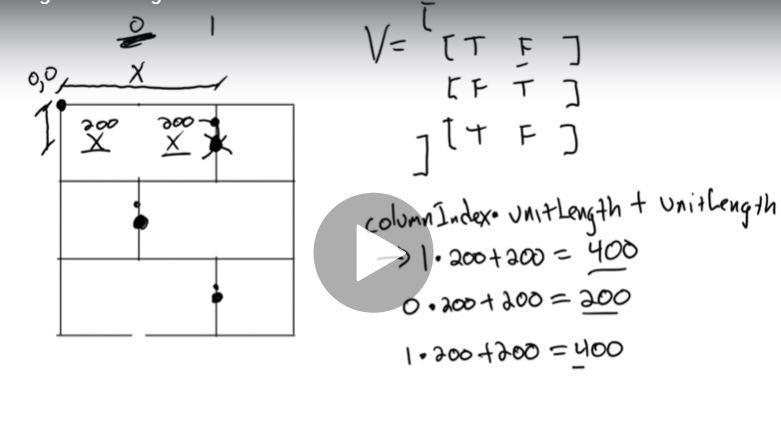 0 1
0,0 X
200 200
X X
V= [
[ T F ]
[ F T ]
[ T F ]
]
columnIndex • unitLength + unitLength
→ 1 • 200 + 200 = 400
0 • 200 + 200 = 200
1 • 200 + 200 = 400